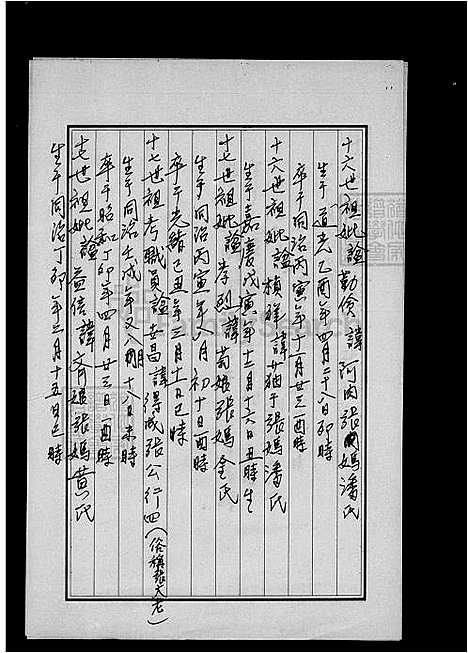 十六世祖妣諡勤儉諱阿肉張媽潘氏
生于道光乙酉年四月二十八日卯時
卒于同治丙寅年十一月廿三酉時
十六世祖妣諡楨祥諱 張媽潘氏
生于嘉慶戊寅年十二月十六日丑時生
十七世祖妣諡孝烈諱 娘張媽金氏
生于同治丙寅年八月初十日酉時
卒于光緒己丑年三月十一日巳時
十七世祖考職員諡世昌諱得成張公行四(俗稱張大老)
生于同治壬戌年又八月十八日未時
卒于昭和丁卯年四月廿三日酉時
十七世祖妣諡益信諱 娘張媽黃氏
生于同治丁卯年三月十五日巳時